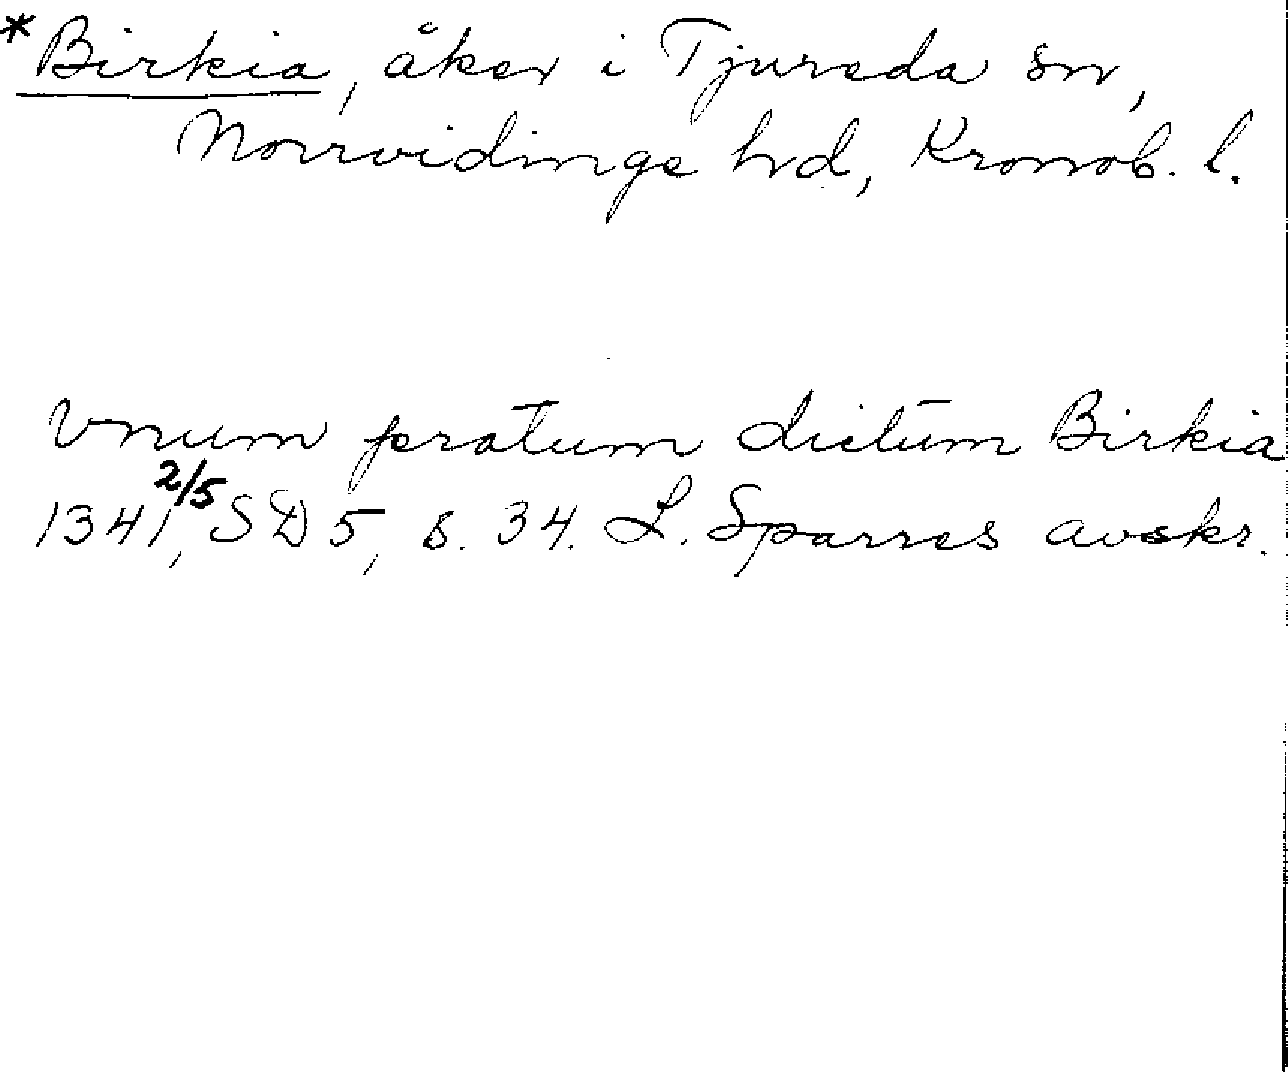 *Birkia, åker i Tjureda sn,
Norrvidinge hd, Kronob. l.
Vnum pratum dictum Birkia
1341 2/5, SD 5, s. 34. L. Sparres avskr.